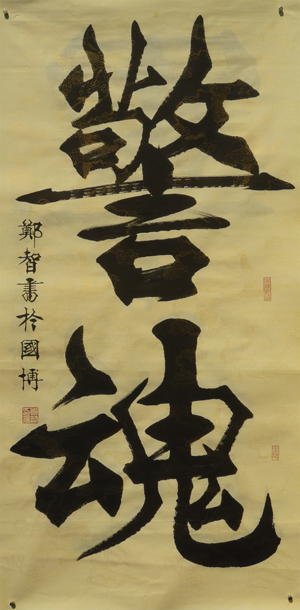 警魂
鄭智書於國博